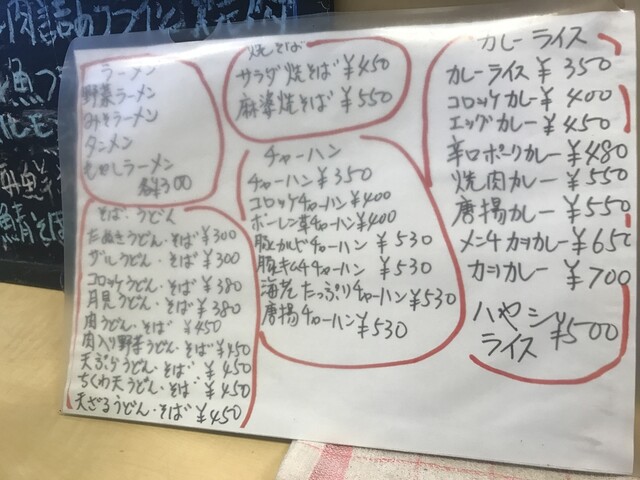 ラーメン
野菜ラーメン
みそラーメン
タンメン
もやしラーメン
各¥300
そば・うどん
たぬきうどん・そば ¥300
ザルうどん・そば ¥300
コロッケうどん・そば ¥380
月見うどん・そば ¥380
肉うどん・そば ¥450
肉入り野菜うどん・そば ¥450
天ぷらうどん・そば ¥450
ちくわ天うどん・そば ¥450
天ざるうどん・そば ¥450
焼そば
サラダ焼そば ¥450
麻婆焼そば ¥550
チャーハン
チャーハン ¥350
コロッケチャーハン ¥400
ホーレン草チャーハン ¥400
豚カルビチャーハン ¥530
豚キムチチャーハン ¥530
海老たっぷりチャーハン ¥530
唐揚チャーハン ¥530
カレーライス
カレーライス ¥350
コロッケカレー ¥400
エッグカレー ¥450
辛口ポークカレー ¥480
焼肉カレー ¥550
唐揚カレー ¥550
メンチカツカレー ¥650
カツカレー ¥700
ハヤシ
ライス ¥500